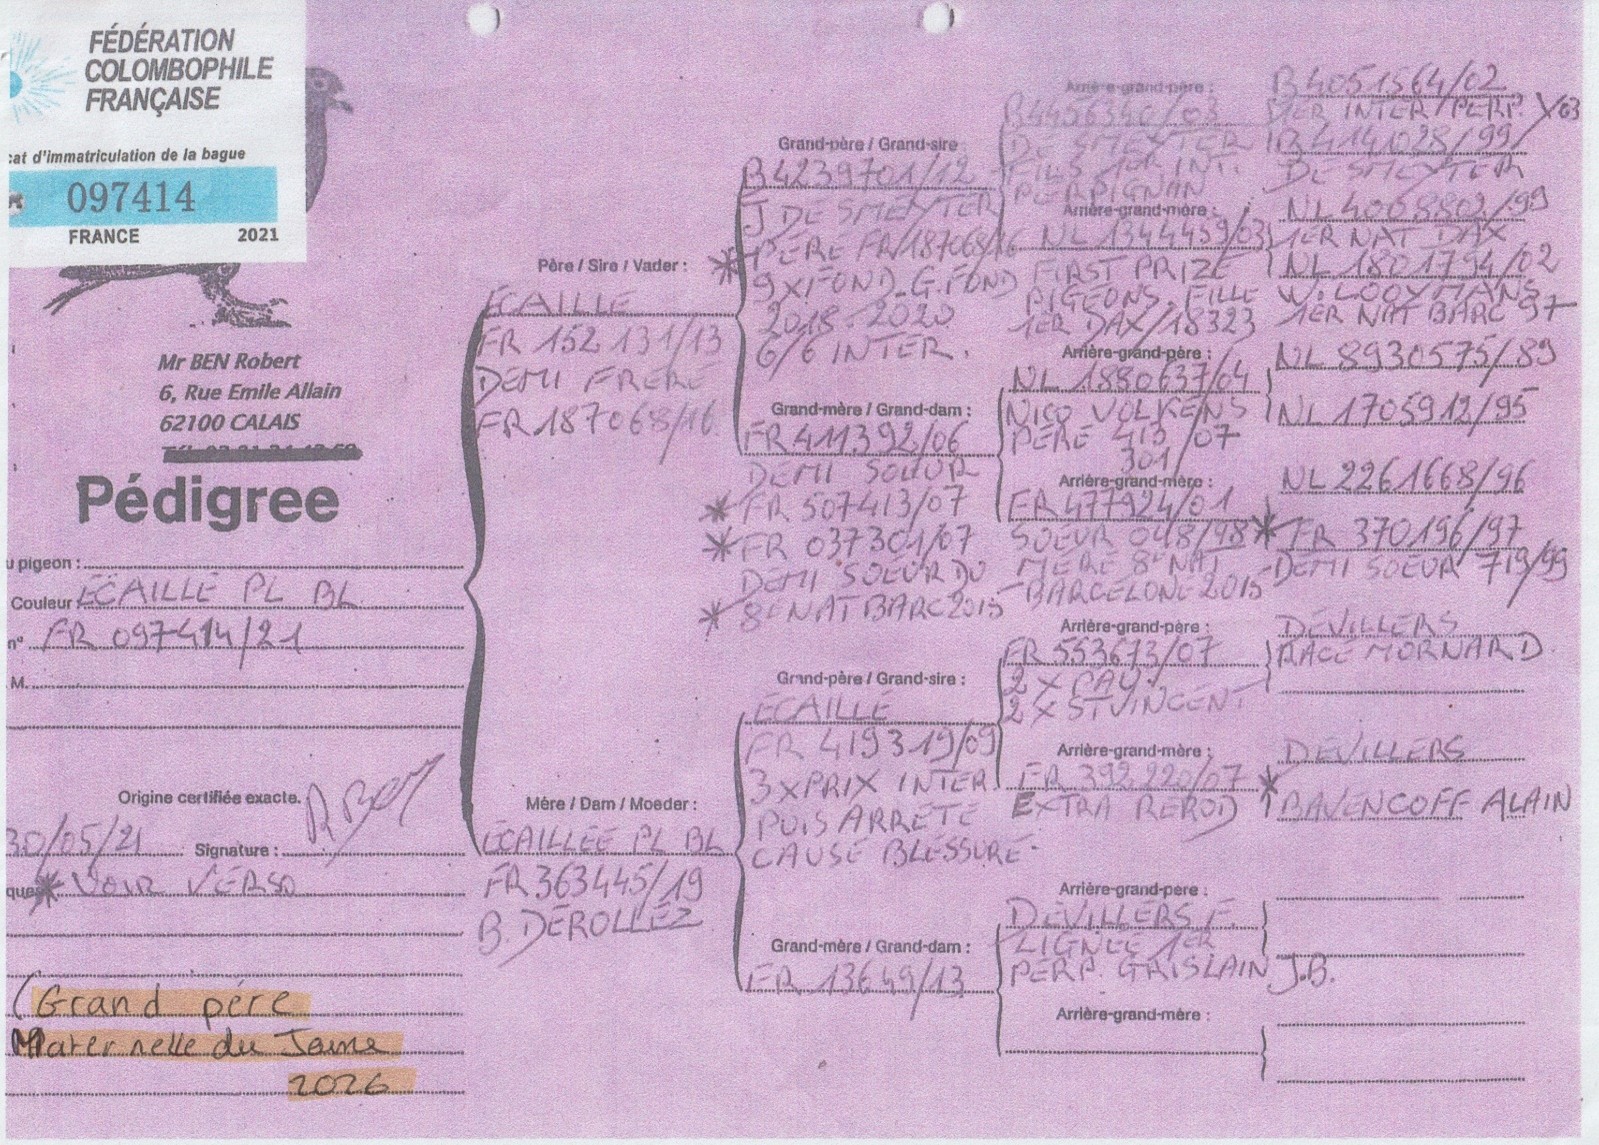 FÉDÉRATION
COLOMBOPHILE
FRANÇAISE
cat d'immatriculation de la bague
097414
FRANCE 2021
Mr BEN Robert
6, Rue Emile Allain
62100 CALAIS
Pédigree
u pigeon :
Couleur ÉCAILLÉ PL BL
n° FR 097414/21
M.
Origine certifiée exacte.
30/05/21 Signature :
ques * VOIR VERSO
(Grand père
Maternelle du Jaune
2026
Père / Sire / Vader :
ÉCAILLÉ
FR 152 131/13
DEMI FRÈRE
FR 187068/16
Mére / Dam / Moeder :
ÉCAILLÉE PL BL
FR 363445/19
B. DÉROLLEZ
Grand-père / Grand-sire :
B4239701/12
J DE SMEYTER
* PÈRE FR/187068/16
9 x FOND. G. FOND
2018-2020
6/6 INTER.
Grand-mère / Grand-dam :
FR 411392/06
DEMI SOEUR
* FR 507413/07
* FR 037301/07
DEMI SOEUR DU
* 8E NAT BARC 2015
Grand-père / Grand-sire :
ÉCAILLÉ
FR 419319/09
3 x PRIX INTER
PUIS ARRÊTÉ
CAUSE BLESSURE
Grand-mère / Grand-dam :
FR 13649/13
Arrière-grand-père :
B4456340/03
DE SMEYTER
FILS 1ER INT.
PERPIGNAN
Arrière-grand-mère :
NL 1344459/03
FIRST PRIZE
PIGEONS. FILLE
1ER DAX/18323
Arrière-grand-père :
NL 1880637/04
NICO VOLKENS
PÈRE 413/07
301
Arrière-grand-mère :
FR 477924/01
SOEUR 048/98
MÈRE 8E NAT
BARCELONE 2015
Arrière-grand-père :
FR 553673/07
2 x PAU
2 x ST VINCENT
Arrière-grand-mère :
FR 392220/07
EXTRA REPOD
Arrière-grand-père :
DEVILLERS F.
LIGNÉE 1ER
PERP. GRISLAIN J.B.
Arrière-grand-mère :
B4051564/02
1ER INTER PERP. Y03
B4141028/99
DE SMEYTER
NL 4068802/99
1ER NAT DAX
NL 1801794/02
W. LOOYMANS
1ER NAT BARC 97
NL 8930575/89
NL 1705912/95
NL 2261668/96
* FR 370196/97
DEMI SOEUR 719/99
DEVILLERS
RACE MORNARD
DEVILLERS
* BAVENCOFF ALAIN